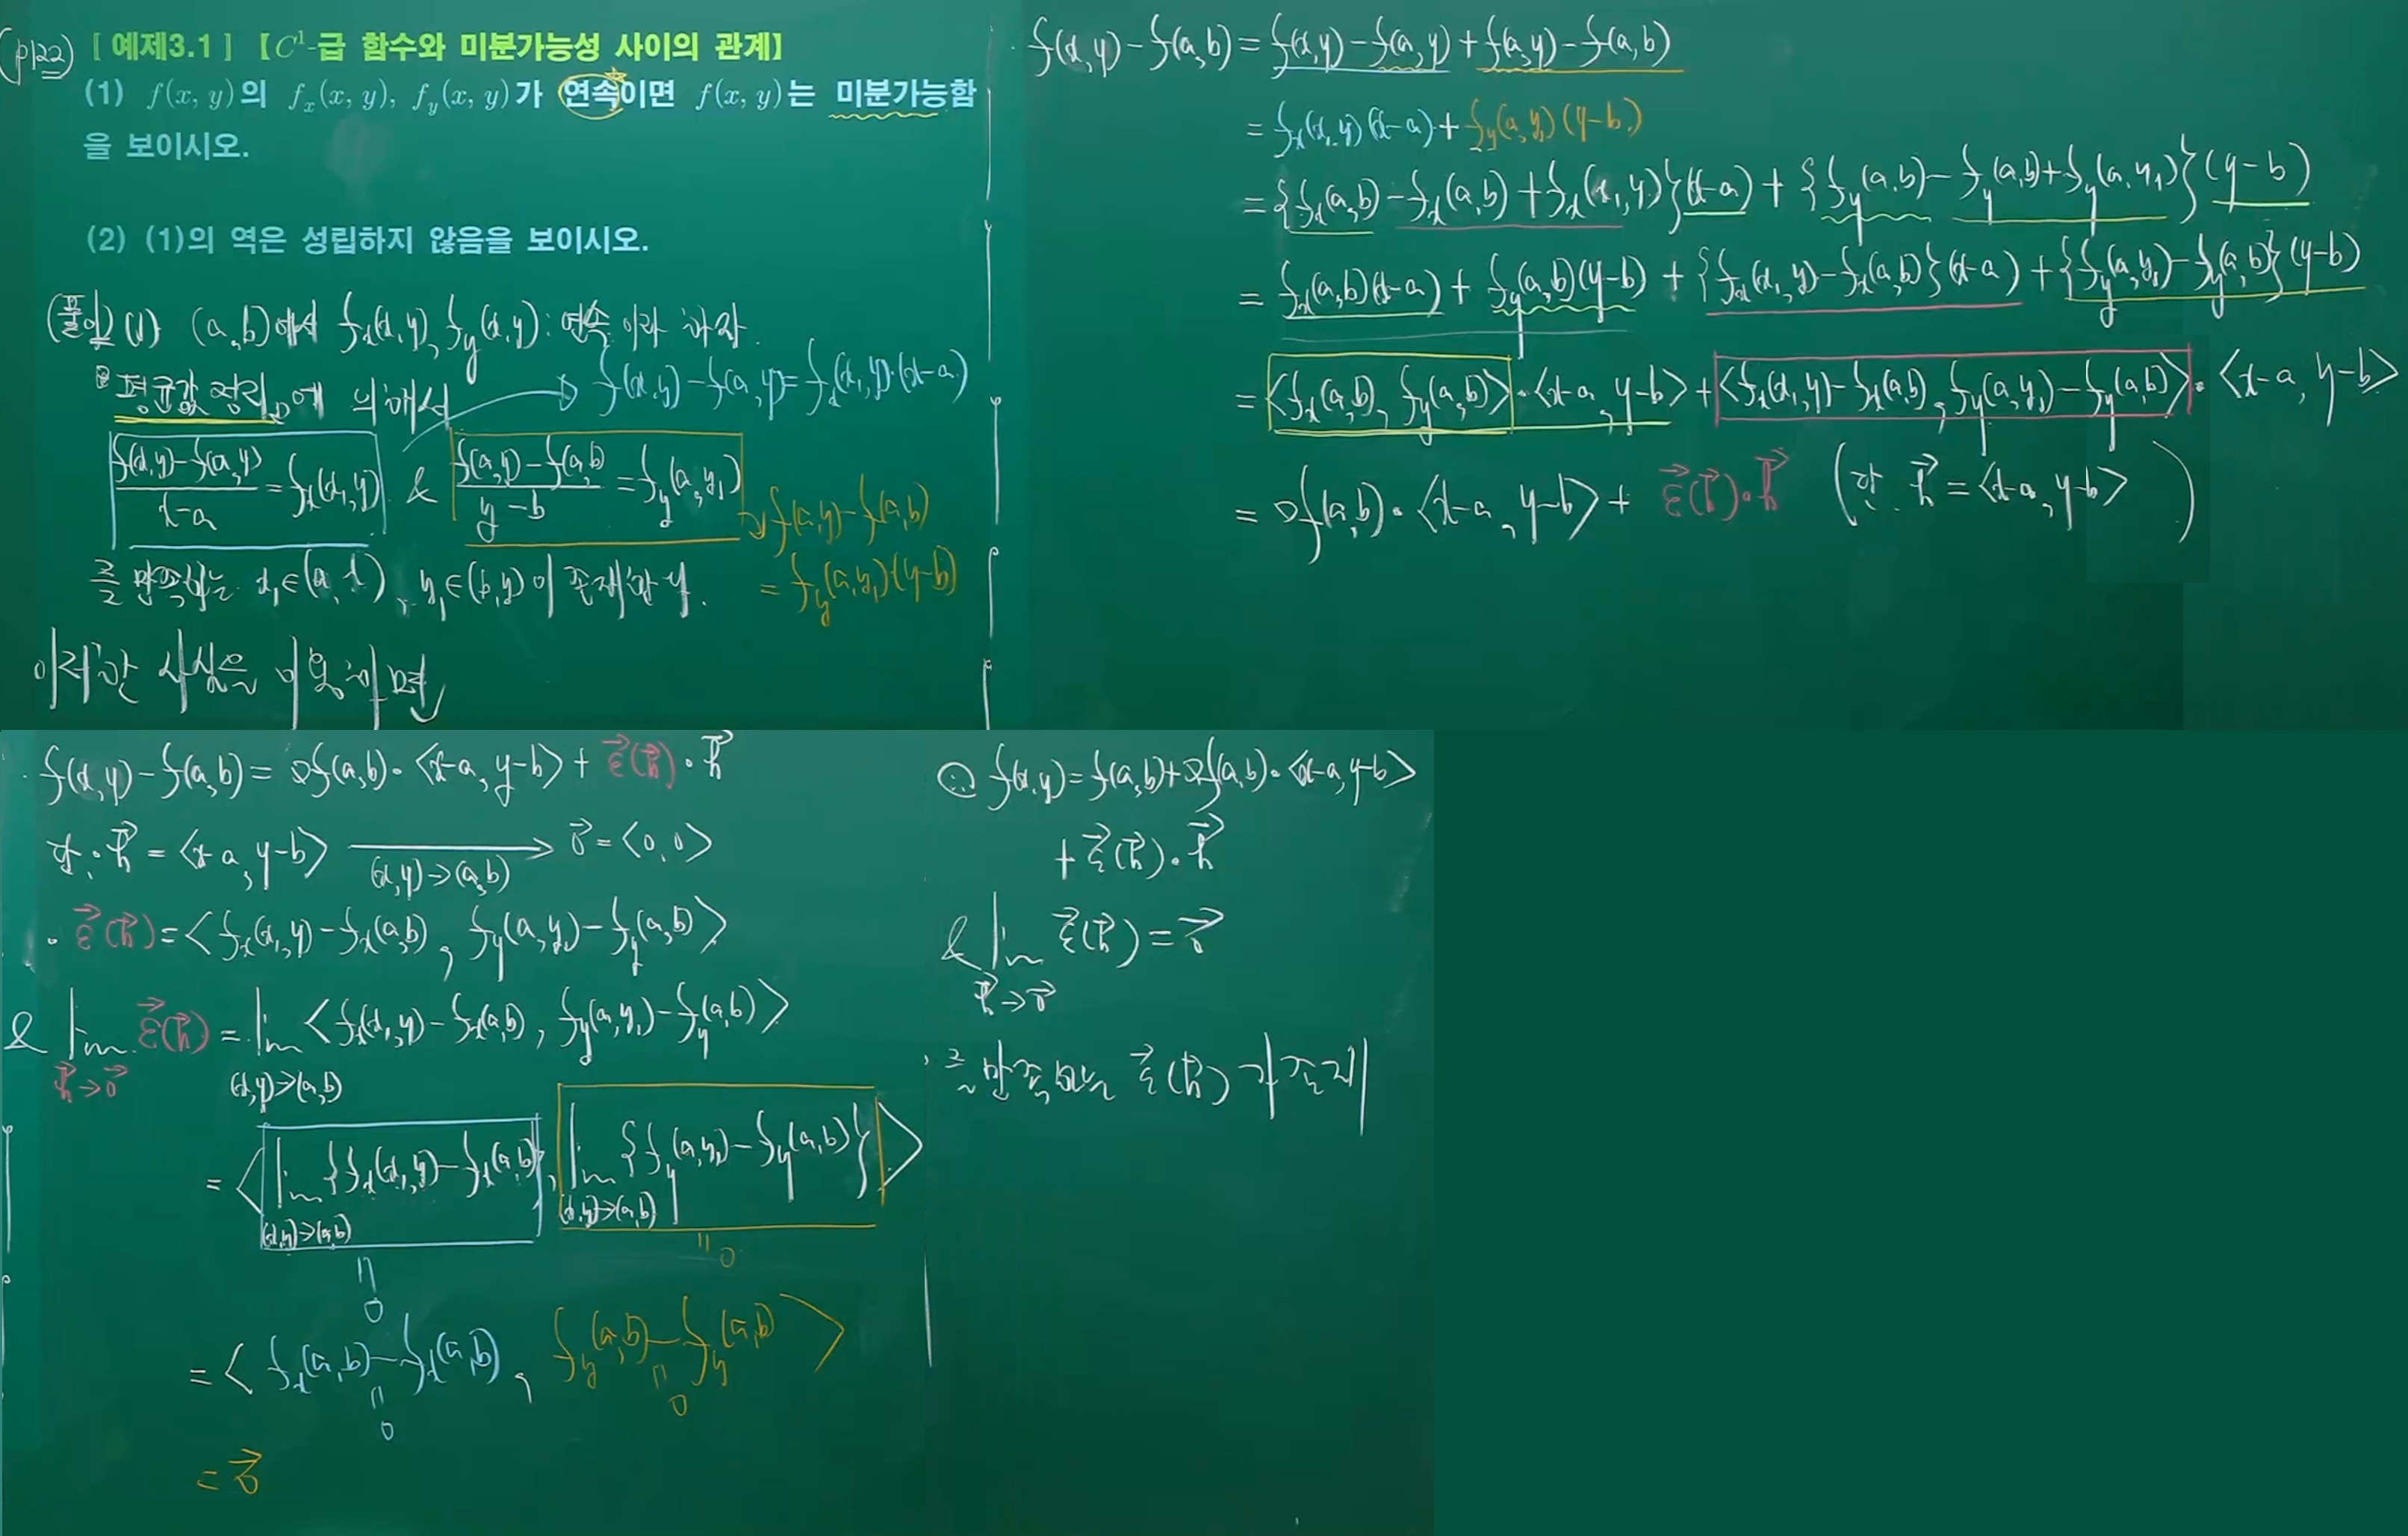 (p122) [예제3.1] 【C¹-급 함수와 미분가능성 사이의 관계】
(1) f(x, y)의 fₓ(x, y), f_y(x, y)가 연속이면 f(x, y)는 미분가능함
을 보이시오.
(2) (1)의 역은 성립하지 않음을 보이시오.
(풀이) (1) (a, b)에서 fₓ(x, y), f_y(x, y) : 연속이라 하자.
평균값 정리에 의해서
→ f(x, y) - f(a, y) = fₓ(x₁, y)·(x-a)
(f(x, y) - f(a, y))/(x-a) = fₓ(x₁, y) & (f(a, y) - f(a, b))/(y-b) = f_y(a, y₁)
→ f(a, y) - f(a, b)
= f_y(a, y₁)(y-b)
를 만족하는 x₁∈(a, x), y₁∈(b, y)이 존재한다.
이러한 사실을 이용하면
f(x, y) - f(a, b) = f(x, y) - f(a, y) + f(a, y) - f(a, b)
= fₓ(x₁, y)(x-a) + f_y(a, y₁)(y-b)
= {fₓ(a, b) - fₓ(a, b) + fₓ(x₁, y)}(x-a) + {f_y(a, b) - f_y(a, b) + f_y(a, y₁)}(y-b)
= fₓ(a, b)(x-a) + f_y(a, b)(y-b) + {fₓ(x₁, y) - fₓ(a, b)}(x-a) + {f_y(a, y₁) - f_y(a, b)}(y-b)
= <fₓ(a, b), f_y(a, b)>·<x-a, y-b> + <fₓ(x₁, y) - fₓ(a, b), f_y(a, y₁) - f_y(a, b)>·<x-a, y-b>
= ∇f(a, b)·<x-a, y-b> + ε⃗(h⃗)·h⃗ (단, h⃗ = <x-a, y-b>)
f(x, y) - f(a, b) = ∇f(a, b)·<x-a, y-b> + ε⃗(h⃗)·h⃗
단. h⃗ = <x-a, y-b> → 0⃗ = <0, 0>
(x, y)→(a, b)
· ε⃗(h⃗) = <fₓ(x₁, y) - fₓ(a, b), f_y(a, y₁) - f_y(a, b)>
& lim ε⃗(h⃗) = lim <fₓ(x₁, y) - fₓ(a, b), f_y(a, y₁) - f_y(a, b)>
h⃗→0⃗ (x, y)→(a, b)
= <lim {fₓ(x₁, y) - fₓ(a, b)}, lim {f_y(a, y₁) - f_y(a, b)}>
(x, y)→(a, b) (x, y)→(a, b)
= 0 = 0
= <fₓ(a, b) - fₓ(a, b), f_y(a, b) - f_y(a, b)>
= 0 = 0
= 0⃗
∴ f(x, y) = f(a, b) + ∇f(a, b)·<x-a, y-b>
+ ε⃗(h⃗)·h⃗
& lim ε⃗(h⃗) = 0⃗
h⃗→0⃗
를 만족하는 ε⃗(h⃗)가 존재